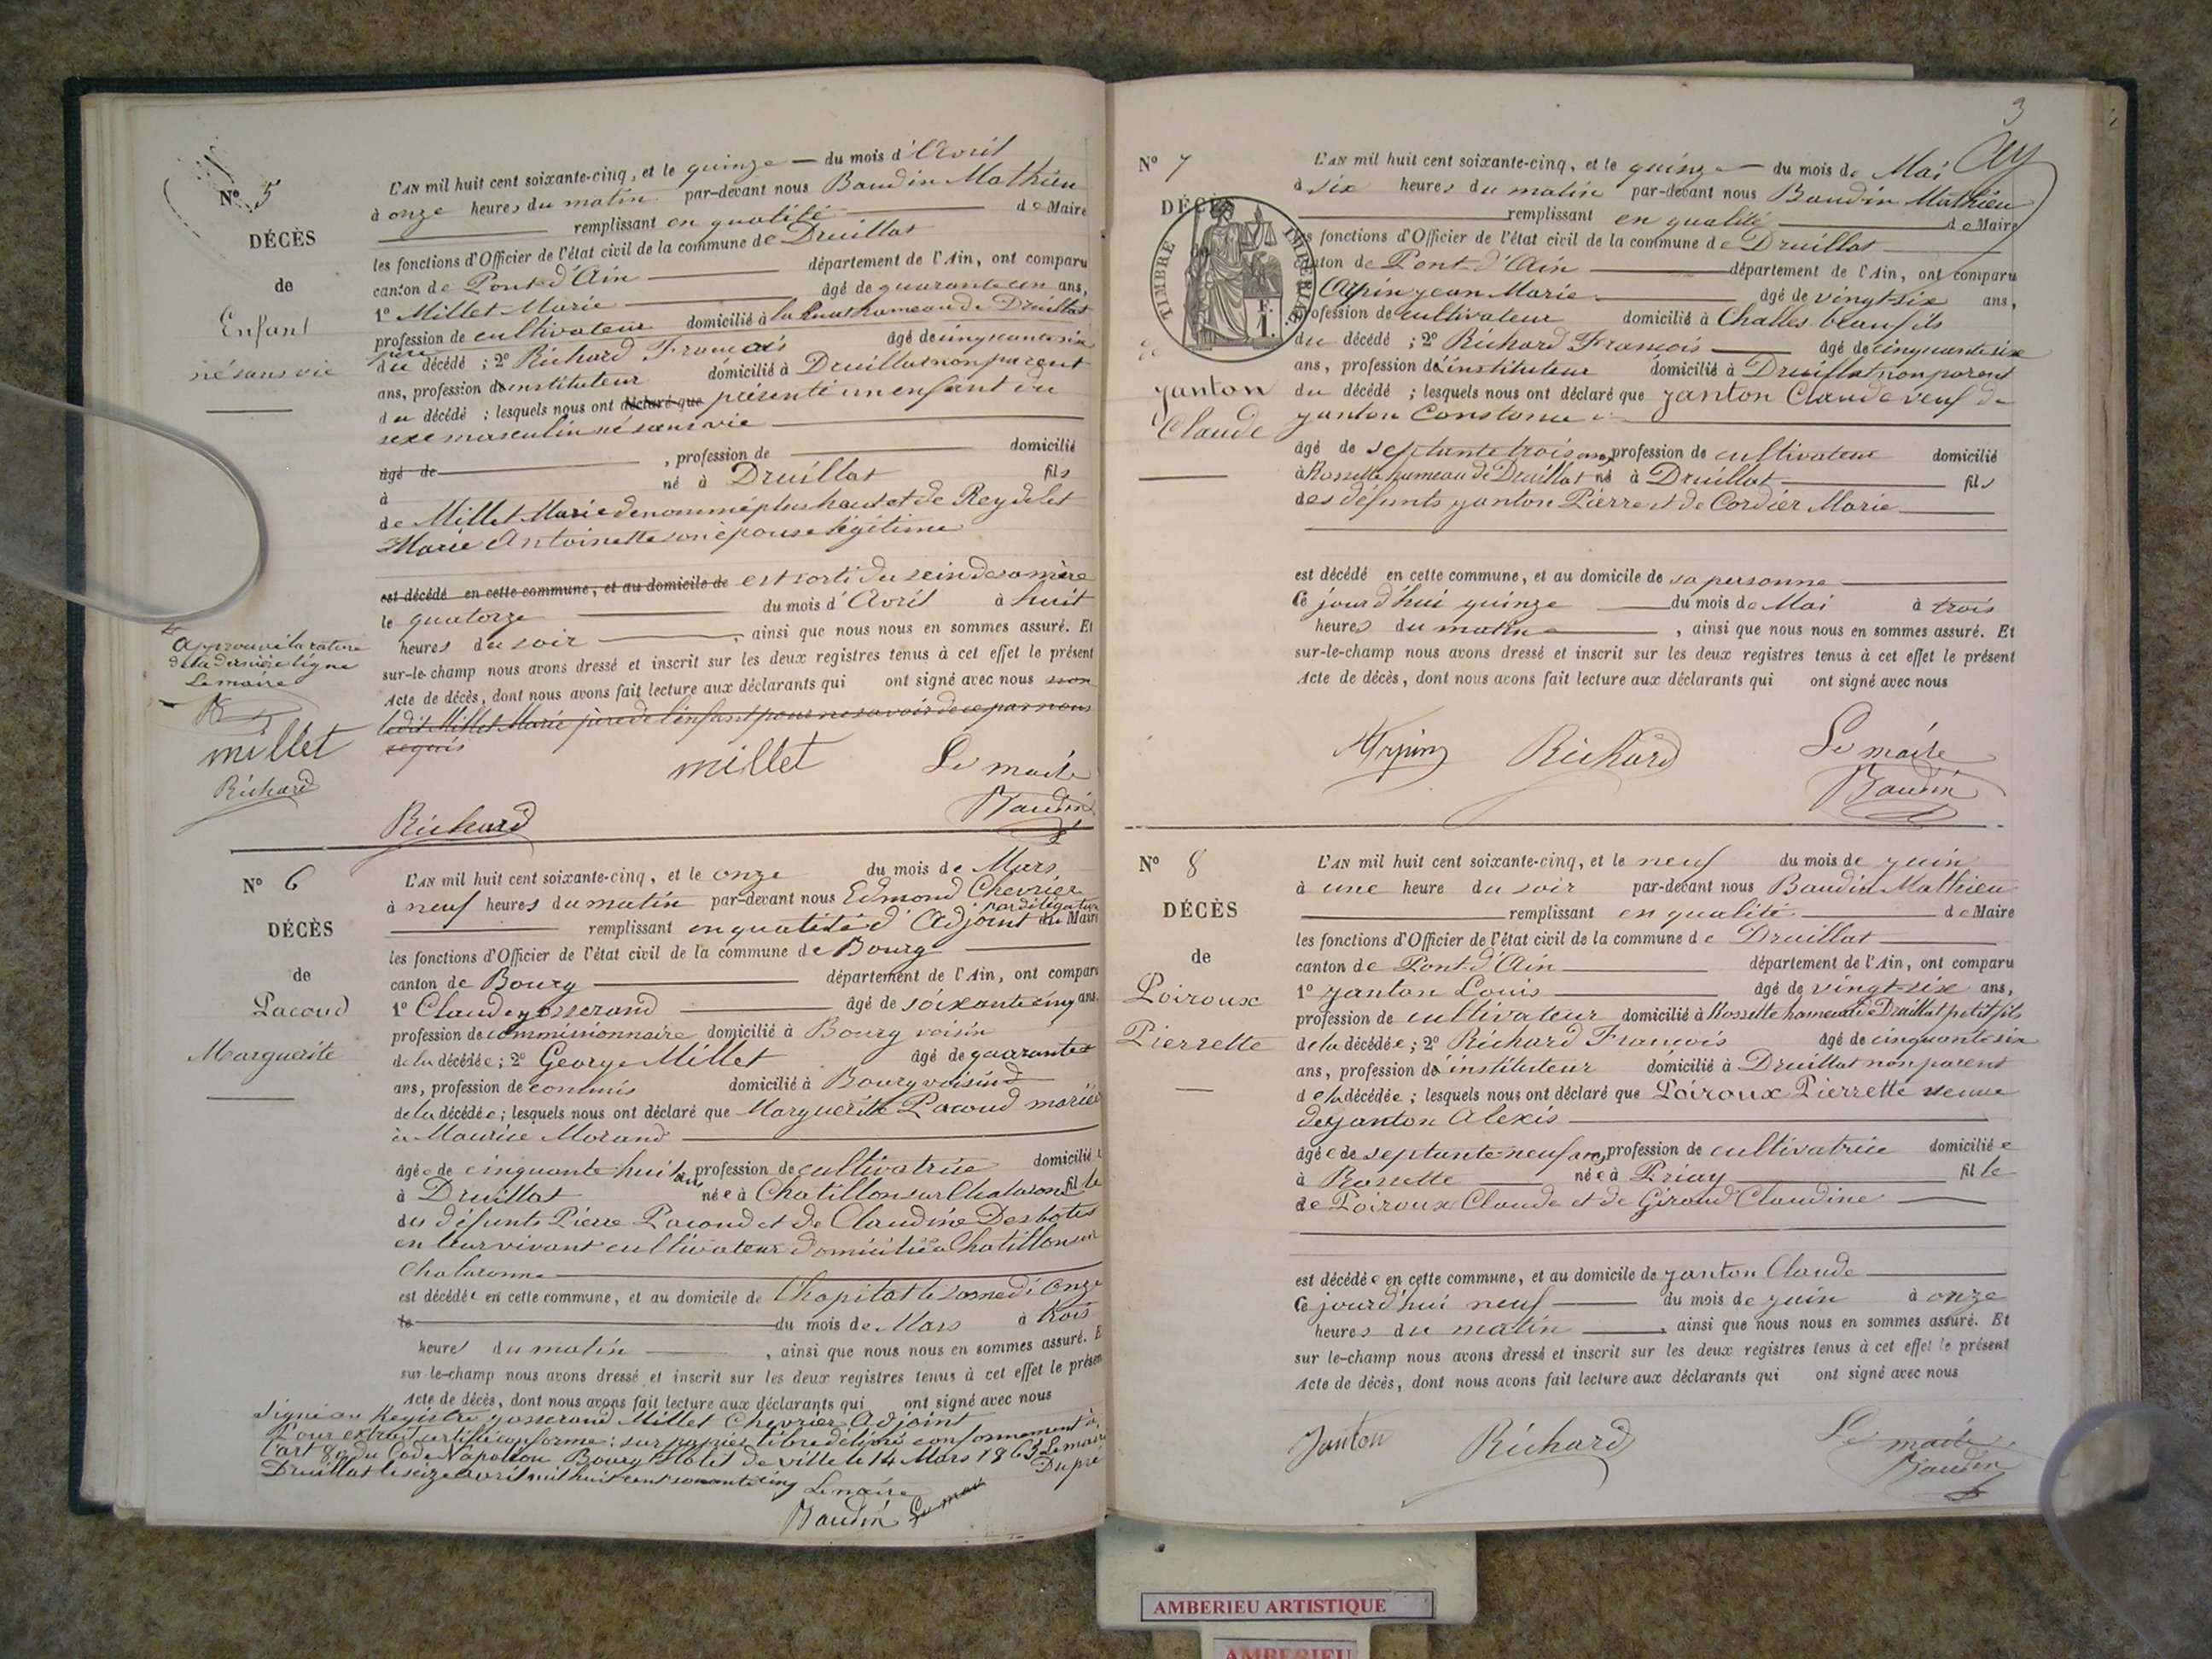 Nº 5
DÉCÈS
de
Enfant
né sans vie
L'AN mil huit cent soixante-cinq, et le quinze — du mois d'Avril
à onze heures du matin par-devant nous Baudin Mathieu
remplissant en qualité de Maire
les fonctions d'Officier de l'état civil de la commune de Druillat
canton de Pont-d'Ain département de l'Ain, ont comparu
1º Millet Marie âgé de quarante un ans,
profession de cultivateur domicilié à la hameau de Druillat
père
du décédé ; 2º Richard François âgé de cinquante six
ans, profession d'instituteur domicilié à Druillat non parent
du décédé ; lesquels nous ont déclaré que présenté un enfant du
sexe masculin né sans vie
âgé de , profession de domicilié
à né à Druillat fils
de Millet Marie dénommé plus haut et de Reydelet
Marie Antoinette son épouse légitime
est décédé en cette commune, et au domicile de est sorti du sein de sa mère
le quatorze du mois d'Avril à huit
heures du soir , ainsi que nous nous en sommes assuré. Et
sur-le-champ nous avons dressé et inscrit sur les deux registres tenus à cet effet le présent
Acte de décès, dont nous avons fait lecture aux déclarants qui ont signé avec nous non
ledit Millet Marie père de l'enfant pour ne savoir de ce par nous
requis
Approuvé la rature
de la dernière ligne
Le maire
millet
Richard
millet
Le maire
Baudin
Richard
Nº 6
DÉCÈS
de
Pacoud
Marguerite
L'AN mil huit cent soixante-cinq, et le onze du mois de Mars
à neuf heures du matin par-devant nous Edmond Chevrier
par délégation
remplissant en qualité d'Adjoint du Maire
les fonctions d'Officier de l'état civil de la commune de Bourg
canton de Bourg département de l'Ain, ont comparu
1º Claude Josserand âgé de soixante cinq ans,
profession de commissionnaire domicilié à Bourg voisin
de la décédée ; 2º George Millet âgé de quarante
ans, profession de commis domicilié à Bourg voisin
de la décédée ; lesquels nous ont déclaré que Marguerite Pacoud mariée
à Maurice Morand
âgée de cinquante huit ans profession de cultivatrice domiciliée
à Druillat née à Chatillon sur Chalaronne fille
des défunts Pierre Pacoud et de Claudine Desbotes
en leur vivant cultivateur domicilié à Chatillon sur
Chalaronne
est décédée en cette commune, et au domicile de l'hopital le samedi onze
le du mois de Mars à trois
heures du matin , ainsi que nous nous en sommes assuré. Et
sur-le-champ nous avons dressé et inscrit sur les deux registres tenus à cet effet le présent
Acte de décès, dont nous avons fait lecture aux déclarants qui ont signé avec nous
Signé au Registre Josserand Millet Chevrier Adjoint
Pour extrait certifié conforme : sur papier libre délivré conformément à
l'art 80 du Code Napoléon Bourg Hotel de ville le 14 Mars 1865 Le maire
Dupré
Druillat le seize avril mil huit cent soixante cinq Le maire
Baudin
3
Nº 7
DÉCÈS
TIMBRE IMPÉRIAL
F.
1.
Janton
Claude
L'AN mil huit cent soixante-cinq, et le quinze — du mois de Mai
à six heures du matin par-devant nous Baudin Mathieu
remplissant en qualité de Maire
les fonctions d'Officier de l'état civil de la commune de Druillat
canton de Pont-d'Ain département de l'Ain, ont comparu
Arpin Jean Marie âgé de vingt-six ans,
profession de cultivateur domicilié à Challes beau fils
du décédé ; 2º Richard François âgé de cinquante six
ans, profession d'instituteur domicilié à Druillat non parent
du décédé ; lesquels nous ont déclaré que Janton Claude veuf de
Janton Constance
âgé de septante trois ans, profession de cultivateur domicilié
à Rossette hameau de Druillat né à Druillat fils
des défunts Janton Pierre et de Cordier Marie
est décédé en cette commune, et au domicile de sa personne
Ce jourd'hui quinze du mois de Mai à trois
heures du matin , ainsi que nous nous en sommes assuré. Et
sur-le-champ nous avons dressé et inscrit sur les deux registres tenus à cet effet le présent
Acte de décès, dont nous avons fait lecture aux déclarants qui ont signé avec nous
Arpin Richard Le maire
Baudin
Nº 8
DÉCÈS
de
Poiroux
Pierrette
L'AN mil huit cent soixante-cinq, et le neuf du mois de Juin
à une heure du soir par-devant nous Baudin Mathieu
remplissant en qualité de Maire
les fonctions d'Officier de l'état civil de la commune de Druillat
canton de Pont-d'Ain département de l'Ain, ont comparu
1º Janton Louis âgé de vingt-six ans,
profession de cultivateur domicilié à Rossette hameau de Druillat petit fils
de la décédée ; 2º Richard François âgé de cinquante six
ans, profession d'instituteur domicilié à Druillat non parent
de la décédée ; lesquels nous ont déclaré que Poiroux Pierrette veuve
de Janton Alexis
âgée de septante neuf ans, profession de cultivatrice domiciliée
à Rossette née à Priay fille
de Poiroux Claude et de Giroud Claudine
est décédée en cette commune, et au domicile de Janton Claude
Ce jourd'hui neuf du mois de Juin à onze
heures du matin , ainsi que nous nous en sommes assuré. Et
sur le-champ nous avons dressé et inscrit sur les deux registres tenus à cet effet le présent
Acte de décès, dont nous avons fait lecture aux déclarants qui ont signé avec nous
Janton Richard Le maire
Baudin
AMBERIEU ARTISTIQUE
AMBERIEU